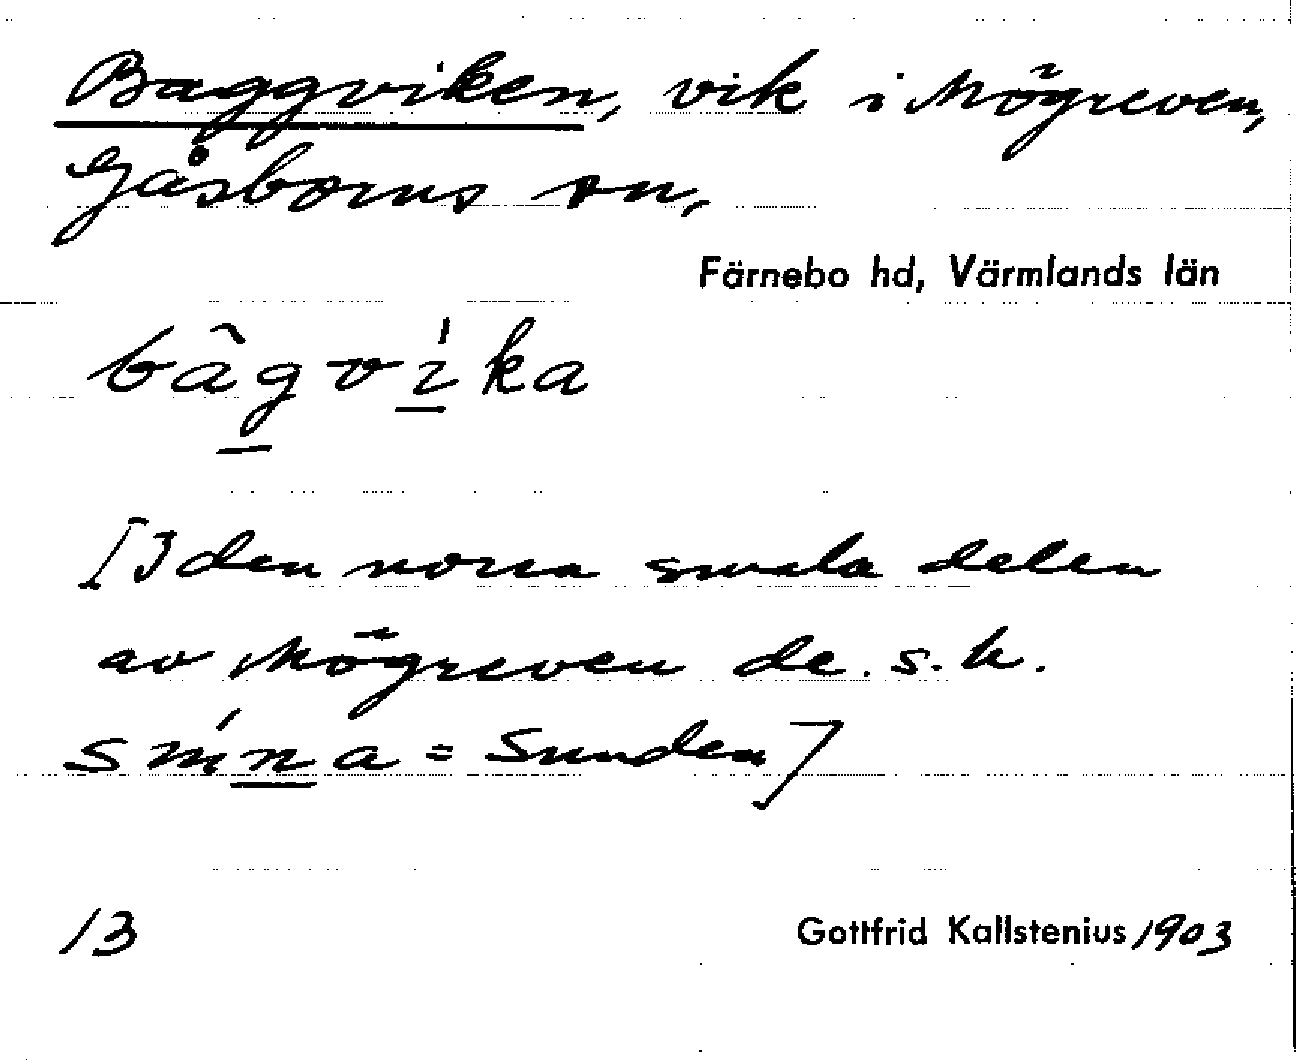 Baggviken, vik i Mögreven,
Gåsborns sn,
Färnebo hd, Värmlands län
bâgvíka
[I den norra smala delen
av Mögreven de. s. k.
= Sunden]
13
Gottfrid Kallstenius 1903